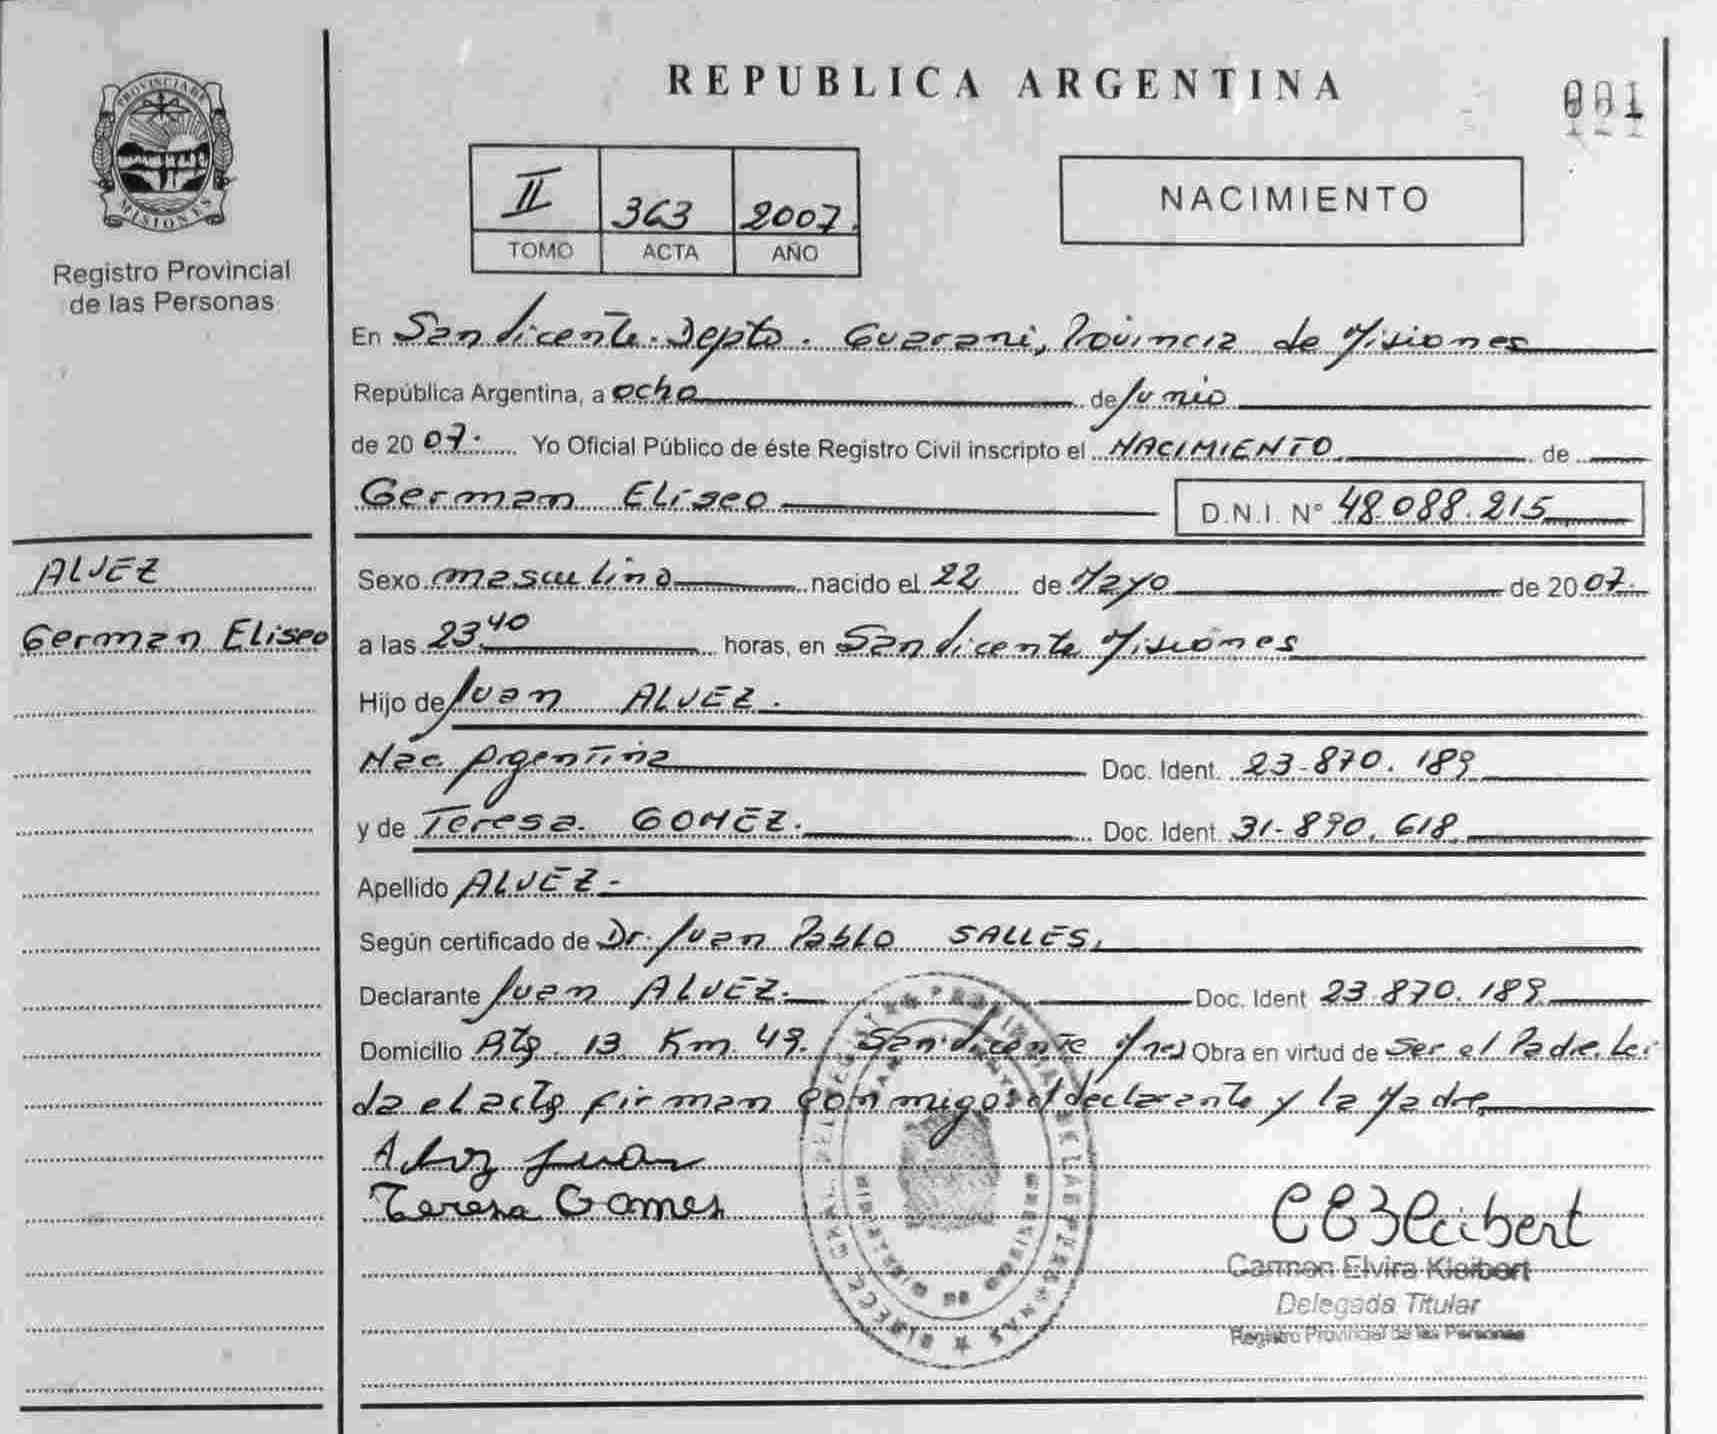 REPUBLICA ARGENTINA
001
PROVINCIA DE
MISIONES
Registro Provincial
de las Personas
II 363 2007.
TOMO ACTA AÑO
NACIMIENTO
En San Vicente. Depto. Guarani, Provincia de Misiones
República Argentina, a ocho de Junio
de 20 07. Yo Oficial Público de éste Registro Civil inscripto el NACIMIENTO de
German Eliseo D.N.I. N° 48.088.215
ALVEZ
German Eliseo
Sexo masculino nacido el 22 de Mayo de 20 07.
a las 23,40 horas, en San Vicente Misiones
Hijo de Juan ALVEZ.
Nac. Argentina Doc. Ident. 23-870.189
y de Teresa. GOMEZ. Doc. Ident. 31-890.618
Apellido ALVEZ.-
Según certificado de Dr. Juan Pablo SALLES,
Declarante Juan ALVEZ. Doc. Ident 23.870.189
Domicilio 13 Km. 49. San Vicente Mnes Obra en virtud de Ser el Padre. Lei
da el acta firman conmigo el declarante y la Madre
Juan
Teresa Gomes
Carmen Elvira Kleibert
Delegada Titular
Registro Provincial de las Personas